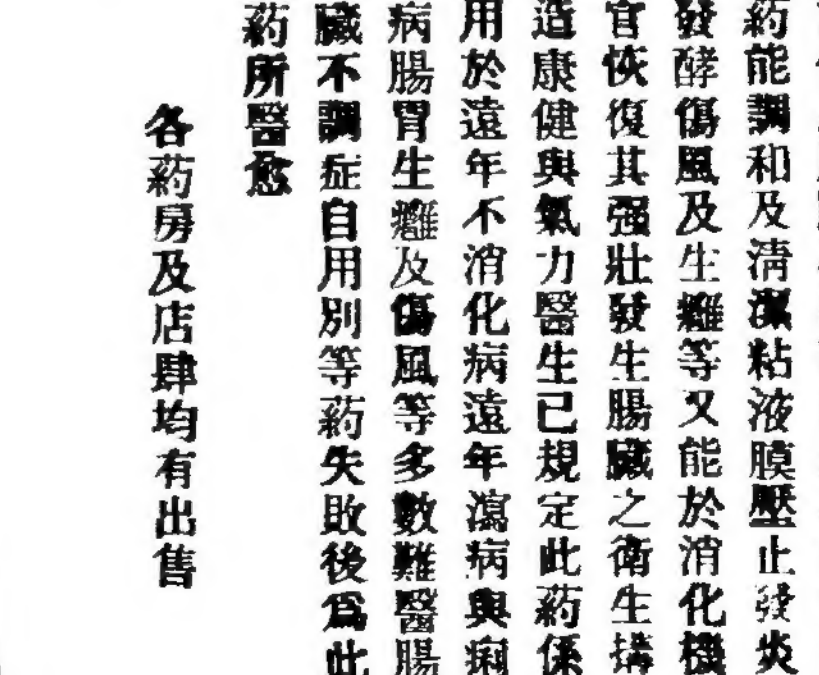 葯能調和及淸潔粘液膜壓止發炎
發酵傷風及生癰等又能於消化機
官恢復其强壯發生腸臟之衛生搆
造康健與氣力醫生已規定此葯係
用於遠年不消化病遠年瀉病與痢
病腸胃生癰及傷風等多數難醫腸
臟不調症自用別等葯失敗後爲此
葯所醫愈
各葯房及店肆均有出售